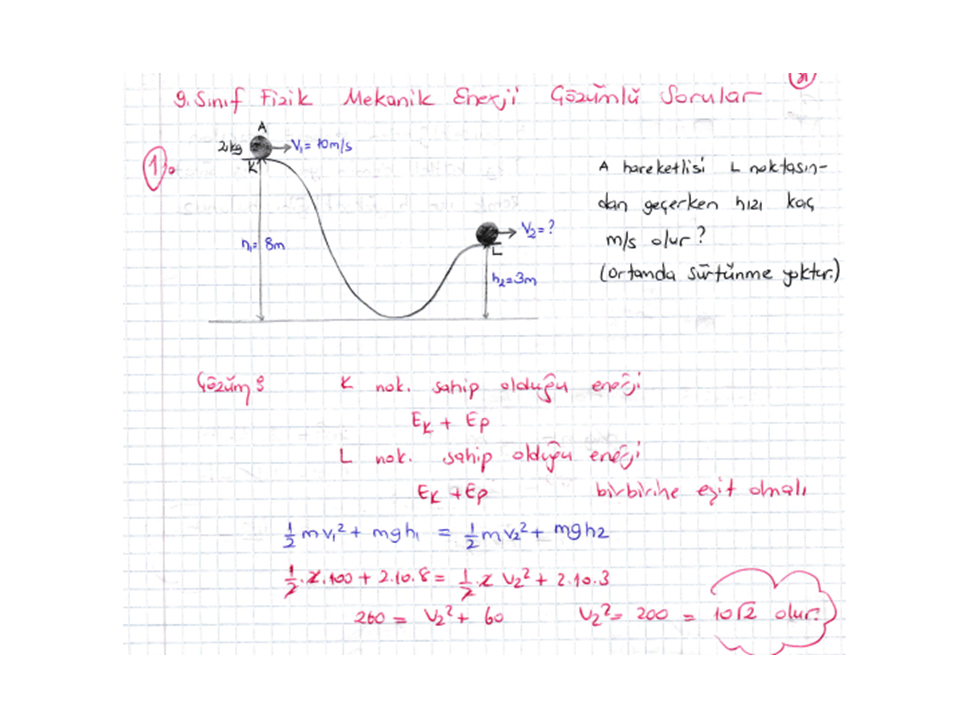 9. Sınıf Fizik Mekanik Enerji Çözümlü Sorular
1)
A
2kg
V₁ = 10m/s
K
h₁ = 8m
V₂ = ?
L
h₂ = 3m
A hareketlisi L noktasın-
dan geçerken hızı kaç
m/s olur?
(Ortamda sürtünme yoktur.)
Çözüm:
K nok. sahip olduğu enerji
EK + EP
L nok. sahip olduğu enerji
EK + EP birbirine eşit olmalı
1/2 m v₁² + m g h₁ = 1/2 m v₂² + m g h2
1/2 . 2 . 100 + 2.10.8 = 1/2 . 2 V₂² + 2.10.3
260 = V₂² + 60 V₂² = 200 = 10√2 olur.